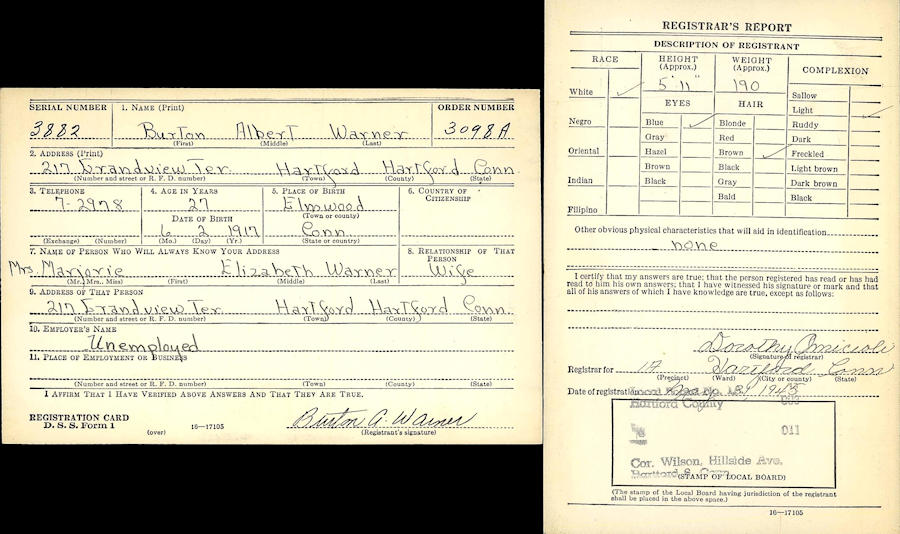 SERIAL NUMBER 1. NAME (Print) ORDER NUMBER
3882 Burton Albert Warner 3098A
(First) (Middle) (Last)
2. ADDRESS (Print)
217 Grandview Ter. Hartford Hartford Conn.
(Number and street or R. F. D. number) (Town) (County) (State)
3. TELEPHONE 4. AGE IN YEARS 5. PLACE OF BIRTH 6. COUNTRY OF CITIZENSHIP
7-2978 27 Elmwood
(Town or county)
DATE OF BIRTH
6 2 1917 Conn
(Exchange) (Number) (Mo.) (Day) (Yr.) (State or country)
7. NAME OF PERSON WHO WILL ALWAYS KNOW YOUR ADDRESS 8. RELATIONSHIP OF THAT PERSON
Mrs. Marjorie Elizabeth Warner Wife
(Mr., Mrs., Miss) (First) (Middle) (Last)
9. ADDRESS OF THAT PERSON
217 Grandview Ter. Hartford Hartford Conn.
(Number and street or R. F. D. number) (Town) (County) (State)
10. EMPLOYER'S NAME
Unemployed
11. PLACE OF EMPLOYMENT OR BUSINESS
(Number and street or R. F. D. number) (Town) (County) (State)
I AFFIRM THAT I HAVE VERIFIED ABOVE ANSWERS AND THAT THEY ARE TRUE.
REGISTRATION CARD
D. S. S. Form 1 (over) 16—17105 Burton A. Warner
(Registrant's signature)
REGISTRAR'S REPORT
DESCRIPTION OF REGISTRANT
RACE HEIGHT (Approx.) WEIGHT (Approx.) COMPLEXION
5' 11" 190
White ✓ Sallow
EYES HAIR Light ✓
Negro Blue ✓ Blonde Ruddy
Gray Red Dark
Oriental Hazel Brown ✓ Freckled
Brown Black Light brown
Indian Black Gray Dark brown
Bald Black
Filipino
Other obvious physical characteristics that will aid in identification
none
I certify that my answers are true; that the person registered has read or has had
read to him his own answers; that I have witnessed his signature or mark and that
all of his answers of which I have knowledge are true, except as follows:
Dorothy
(Signature of registrar)
Registrar for Hartford Conn
(Precinct) (Ward) (City or county) (State)
Date of registration 1945
Hartford County
011
Cor. Wilson, Hillside Ave.
Hartford 6, Conn.
(STAMP OF LOCAL BOARD)
(The stamp of the Local Board having jurisdiction of the registrant
shall be placed in the above space.)
16—17105